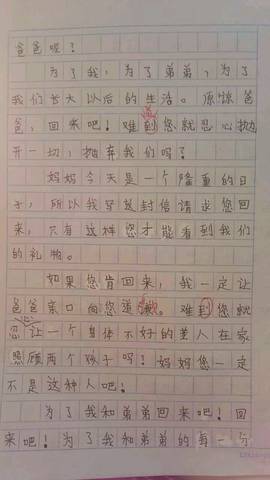 爸爸呢!
为了我,为了弟弟,为了
道
我们长大以后的生活。原谅爸
爸,回来吧!难到您就忍心抛
开一切,抛弃我们吗?
妈妈今天是一个隆重的日
子,所以我写这封信请求您回
来,只有这样您才能看到我们
的礼物。
如果您肯回来,我一定让
爸爸亲口向您道歉。难到您就
忍让一个身体不好的人在家
照顾两个孩子吗!妈妈您一定
不是这种人吧!
为了我和弟弟回来吧!回
来吧!为了我和弟弟的每一分